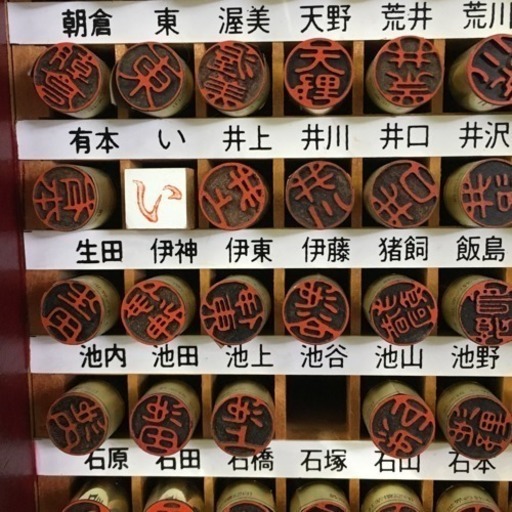 朝倉 東 渥美 天野 荒井 荒川
有本 い 井上 井川 井口 井沢
い
生田 伊神 伊東 伊藤 猪飼 飯島
池内 池田 池上 池谷 池山 池野
石原 石田 石橋 石塚 石山 石本